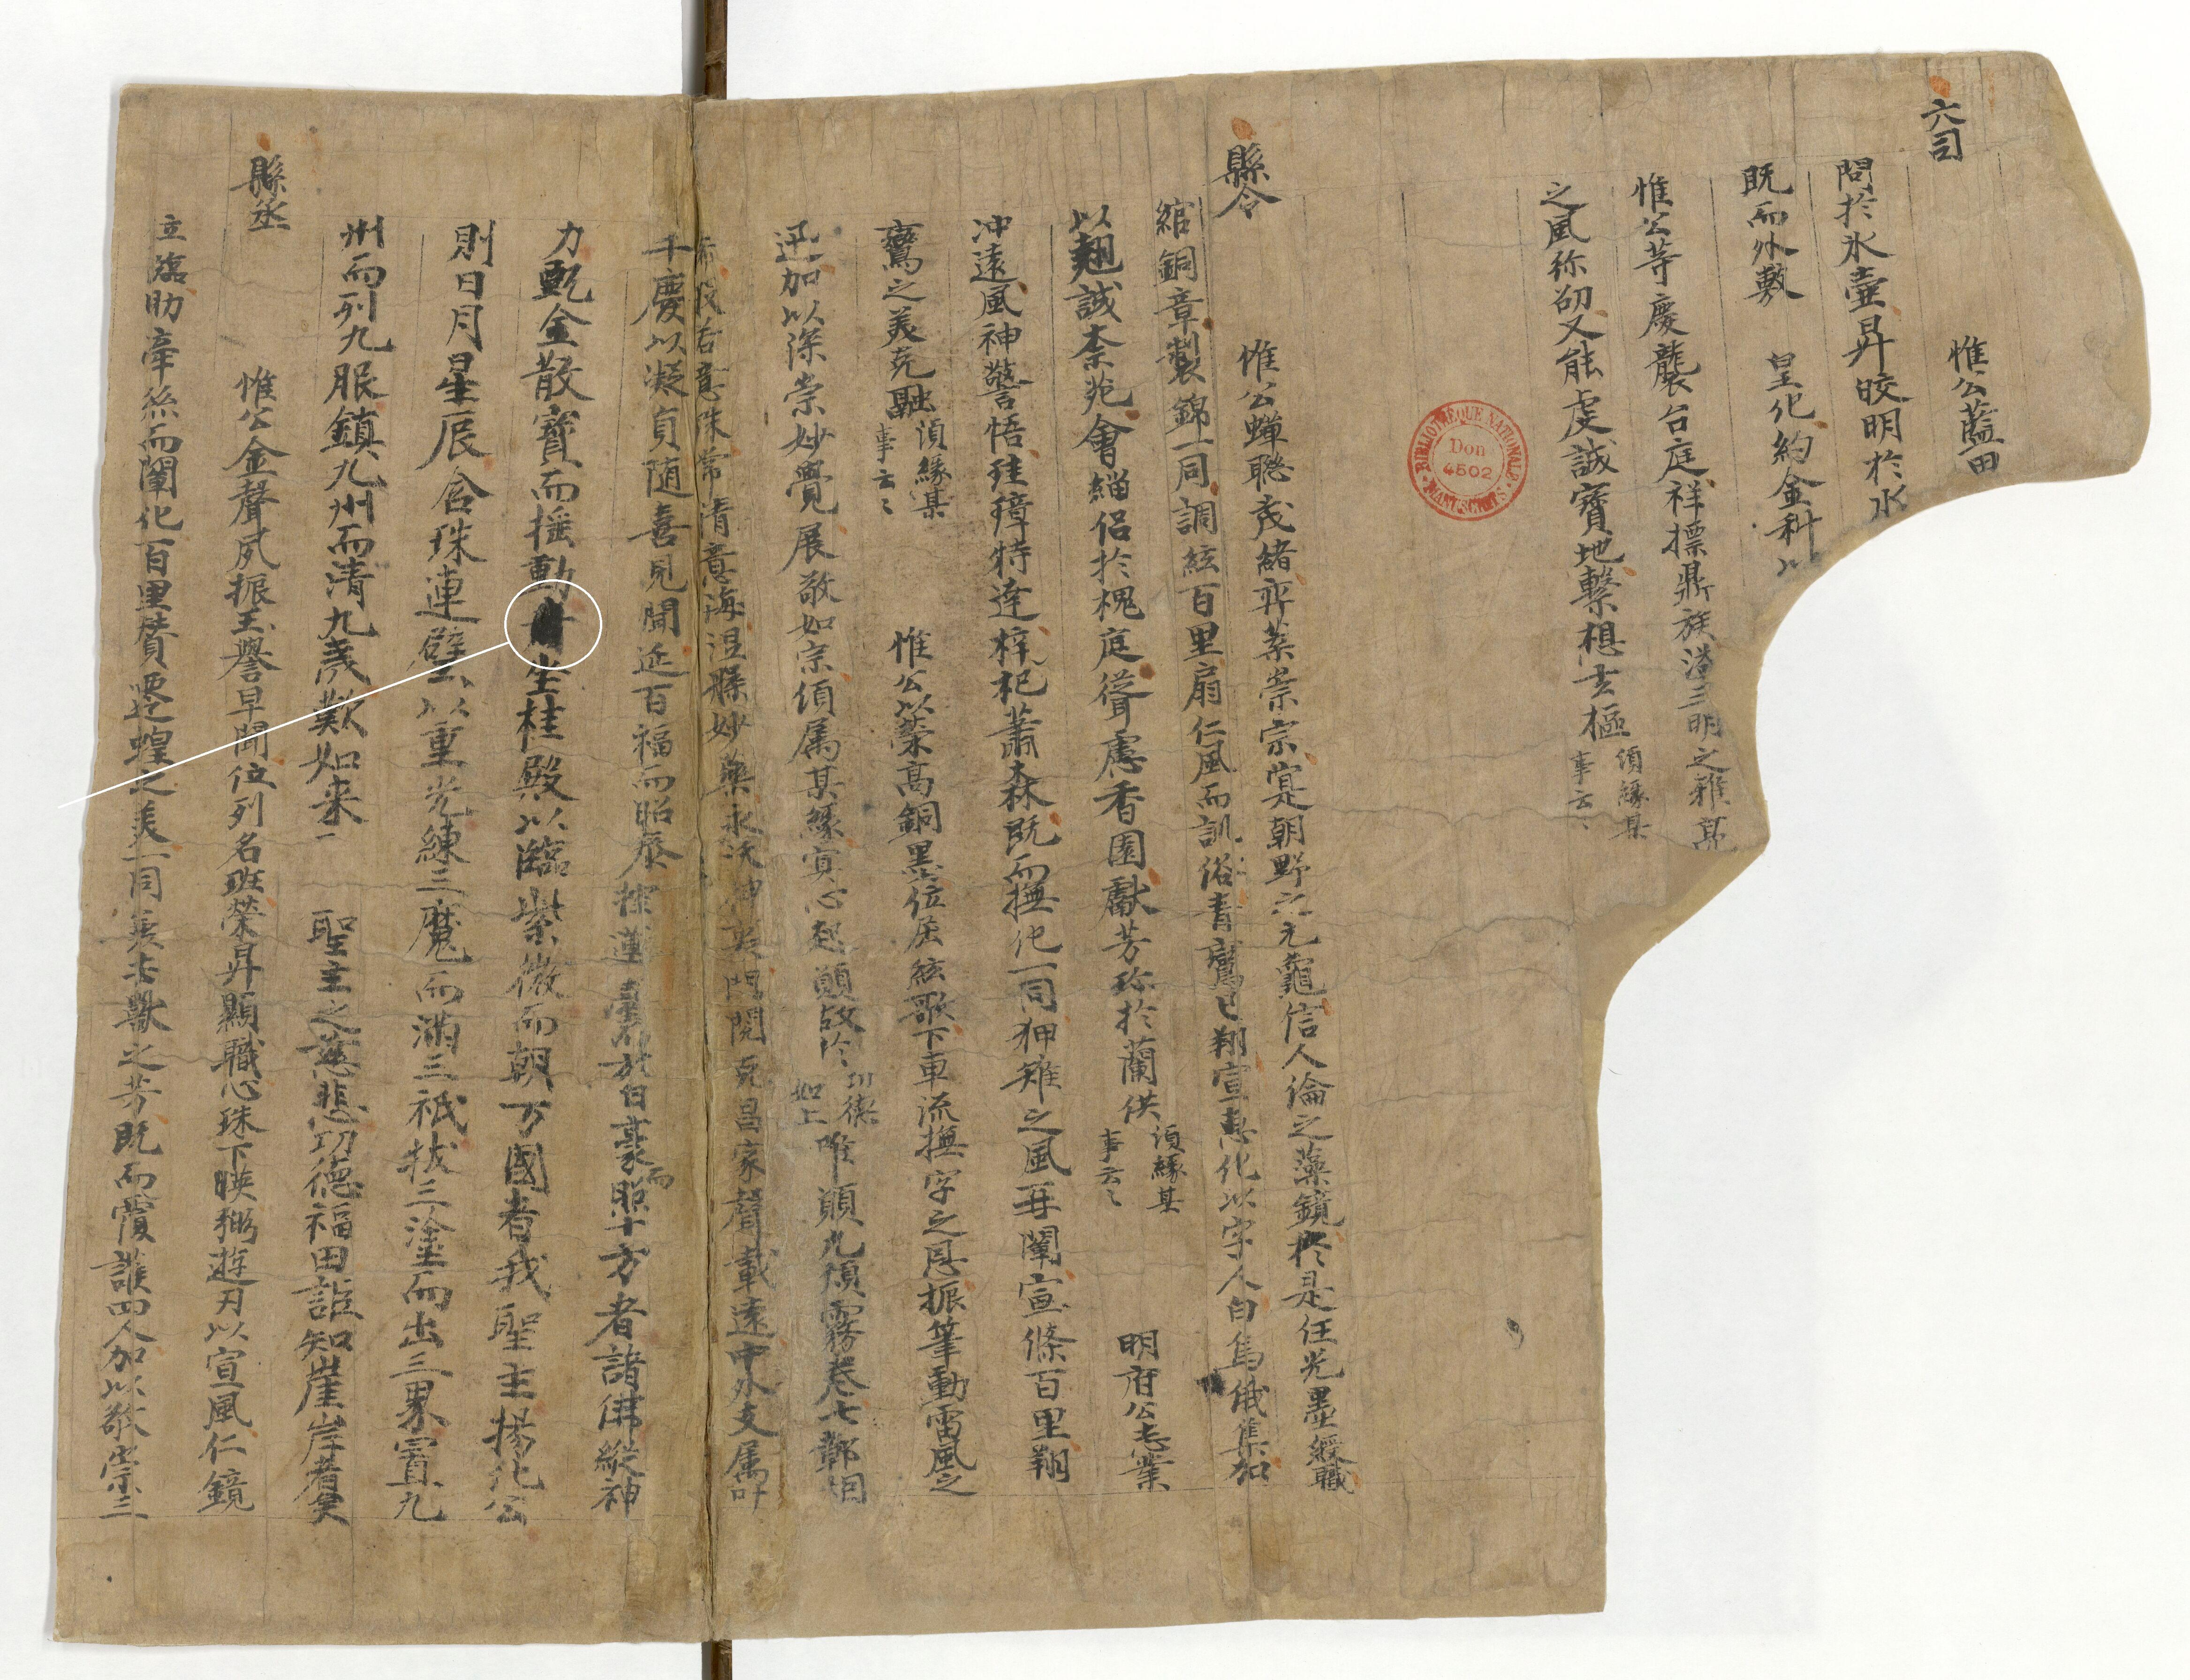 六司
惟公藍田
問於氷壺昇皎明於水
既而外敷 皇化約金科以
惟公等慶襲台庭祥摽鼎族 三明之雅
之風弥劭又能虔誠寶地繫想玄樞 須緣某事云〻
BIBLIOTHÈQUE NATIONALE
Don 4502
MANUSCRITS
縣令
惟公蟬聡茂緒弈葉崇宗寔朝野之元龜信人倫之藻鏡於是任光墨綬職
綰銅章製錦一同調絃百里扇仁風而訓俗青鸞已翔宣惠化以字人白烏俄集加
以翹誠柰苑會緇侣於槐庭聳慮香園獻芳珎於蘭供 須緣某事云〻 明府公志業
冲遠風神警悟珪璋特達梓杞蕭森既而撫化一同狎雉之風再闡宣條百里翔
鸞之美克融 須緣某事云〻 惟公以榮高銅墨位居絃歌下車流撫字之恩振筆動雷風之
迅加以深崇妙覺展敬如宗傾属某緣寘心起願故於 功德如上 唯願九傾霧卷七鄣
意珠常清意海湿 妙藥永沃神 門閥克昌家聲載遠中外支属叶
千慶以凝貞随喜見聞延百福而昭泰 蓮臺 於白豪而照十方者諸佛縱神
力甄金散寶而揺動 生桂殿以臨紫微而朝万國者我聖主揚化公
則日月星辰含珠連壁以重光練三魔而滿三祇拔三塗而出三界賓九
州而列九服鎮九州而清九歳歎如来一 聖主之慈悲功德福田詎知崖岸者矣
縣丞
惟公金聲夙振玉譽早聞位列名班榮昇顯職心珠下暎 遊刃以宣風仁鏡
立臨助牽絲而闡化百里賛 蝗之美一同 去獸之芳既而霞 四人加以敬崇三